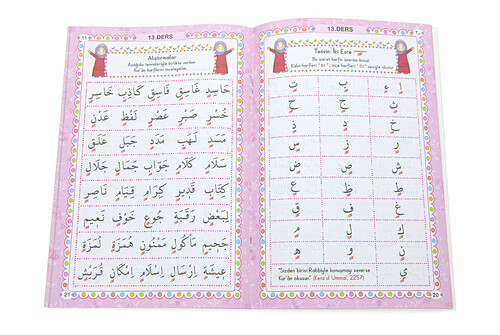 13.DERS
Tenvin: İki Esre
Bu işaret harfin üzerine konur.
Kalın harfleri "ın", ince harfleri "in" sesiyle okutur.
إٍ ءٍ بٍ تٍ
ثٍ جٍ حٍ
خٍ دٍ ذٍ
رٍ زٍ سٍ
شٍ صٍ ضٍ
طٍ ظٍ عٍ
غٍ فٍ قٍ
كٍ لٍ مٍ
نٍ وٍ هٍ
يٍ
"Sizden birisi Rabbiyle konuşmayı severse
Kur'ân okusun." (Kenz'ul Ummal, 2257)
20
13.DERS
Alıştırmalar
Aşağıda tenvinleriyle birlikte verilen
Kur'ân harflerini inceleyelim.
حَاسِدٍ غَاسِقٍ فَاسِقٍ كَاذِبٍ خَاسِرٍ
خُسْرٍ صَبْرٍ عَصْرٍ لَفْظٍ عَدْنٍ
مَسَدٍ لَهَبٍ مَدَدٍ جَبَلٍ عَلَقٍ
سَلَامٍ كَلَامٍ جَوَابٍ جَمَالٍ جَلَالٍ
كِتَابٍ قَدِيرٍ كِرَامٍ قِيَامٍ نَاصِرٍ
لِبَعْضٍ رَقَبَةٍ جُوعٍ خَوْفٍ نَعِيمٍ
جَحِيمٍ مَأْكُولٍ مَمْنُونٍ هُمَزَةٍ لُمَزَةٍ
عِيشَةٍ اِرْسَالٍ اِسْلَامٍ اِمْكَانٍ قُرَيْشٍ
21